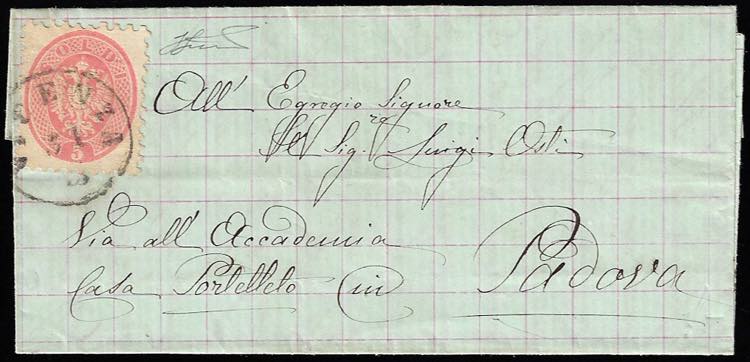 SOLDI
5
All' Egregio Signore
Il Sig.re Luigi Osti
Via all' Accademia
Casa Portelleto in Padova